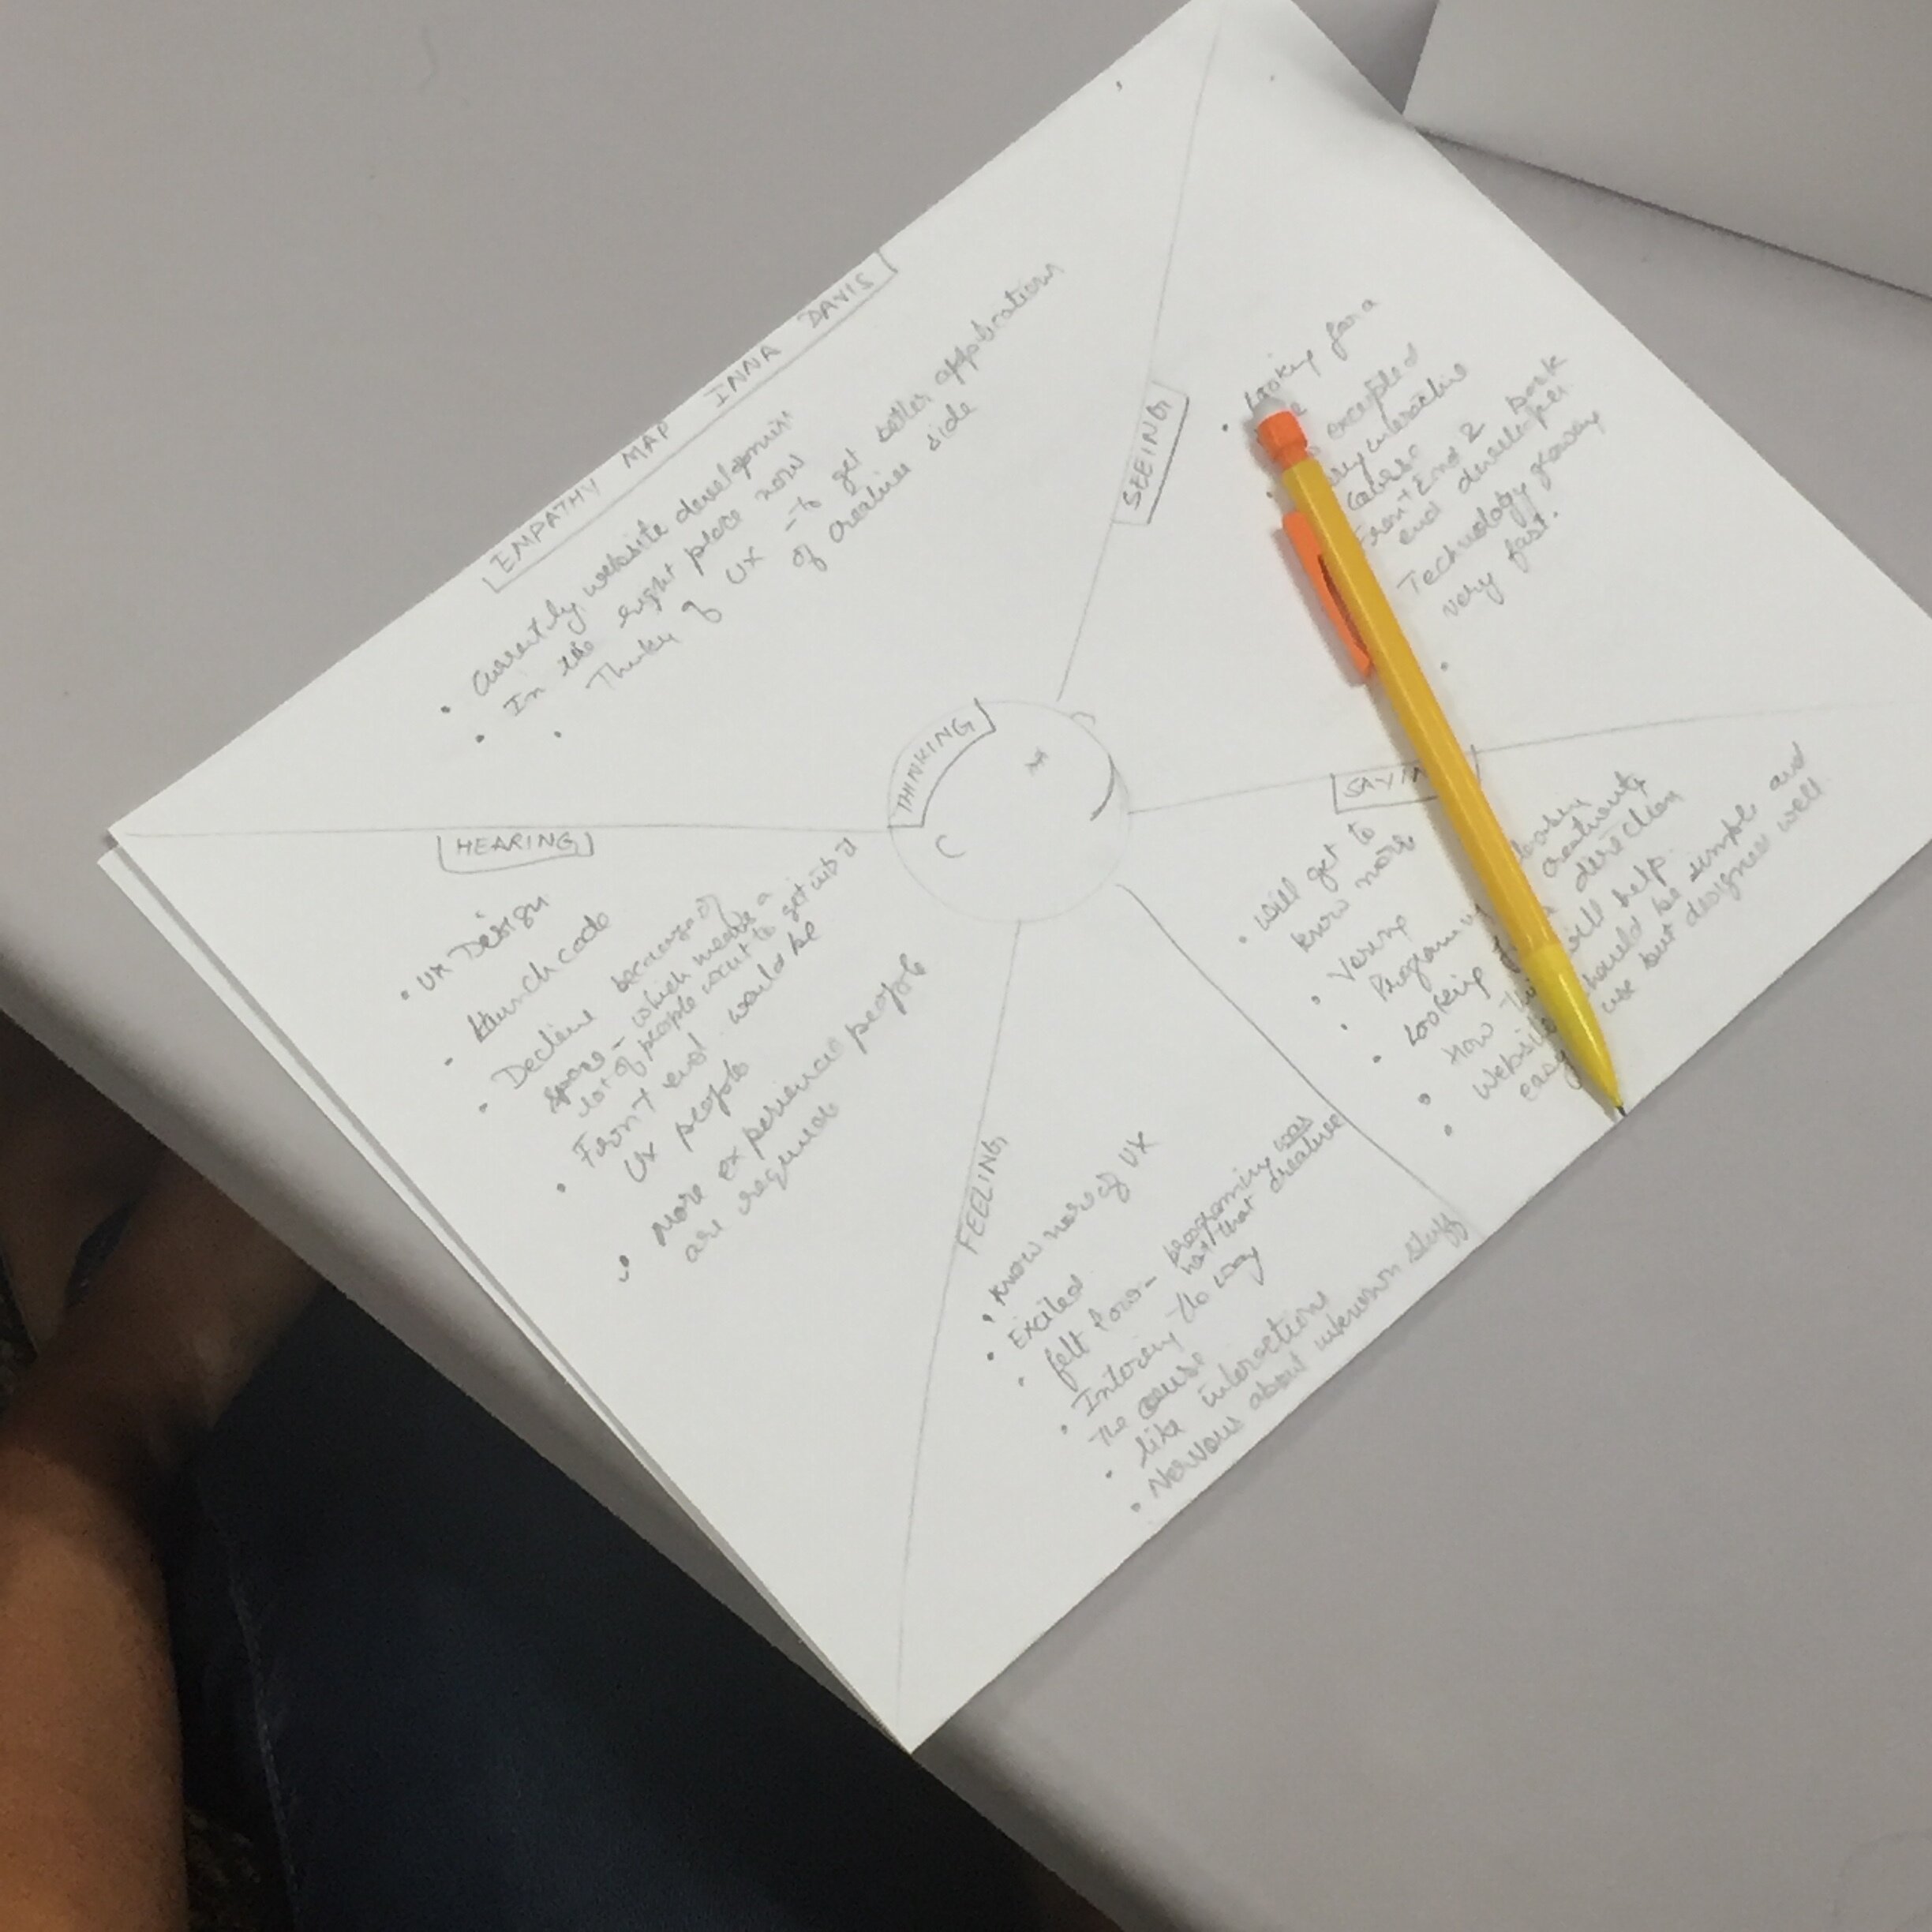 EMPATHY MAP INNA DAVIS
THINKING
• Currently website development
• In the right place now
• Thinky of UX - to get better application
of creative side
SEEING
• Looking for a
excepted
very interactive
Front End & back
end developer.
Technology growing
very fast.
•
SAYIN
• will get to
know more
• Varing
•
creativity
• Looking direction
• How will help.
• Website should be simple and
easy use but designed well
HEARING
• UX Design
• Launchcode
• Decline because of
space - which means a
lot of people want to get into it
• Front end would be
UX people
• More experienced people
are required
FEELING
• Know more of UX
• Excited
• felt low - programming was
not that creative
• the way
the course
• like interactions
• Nervous about unknown stuff